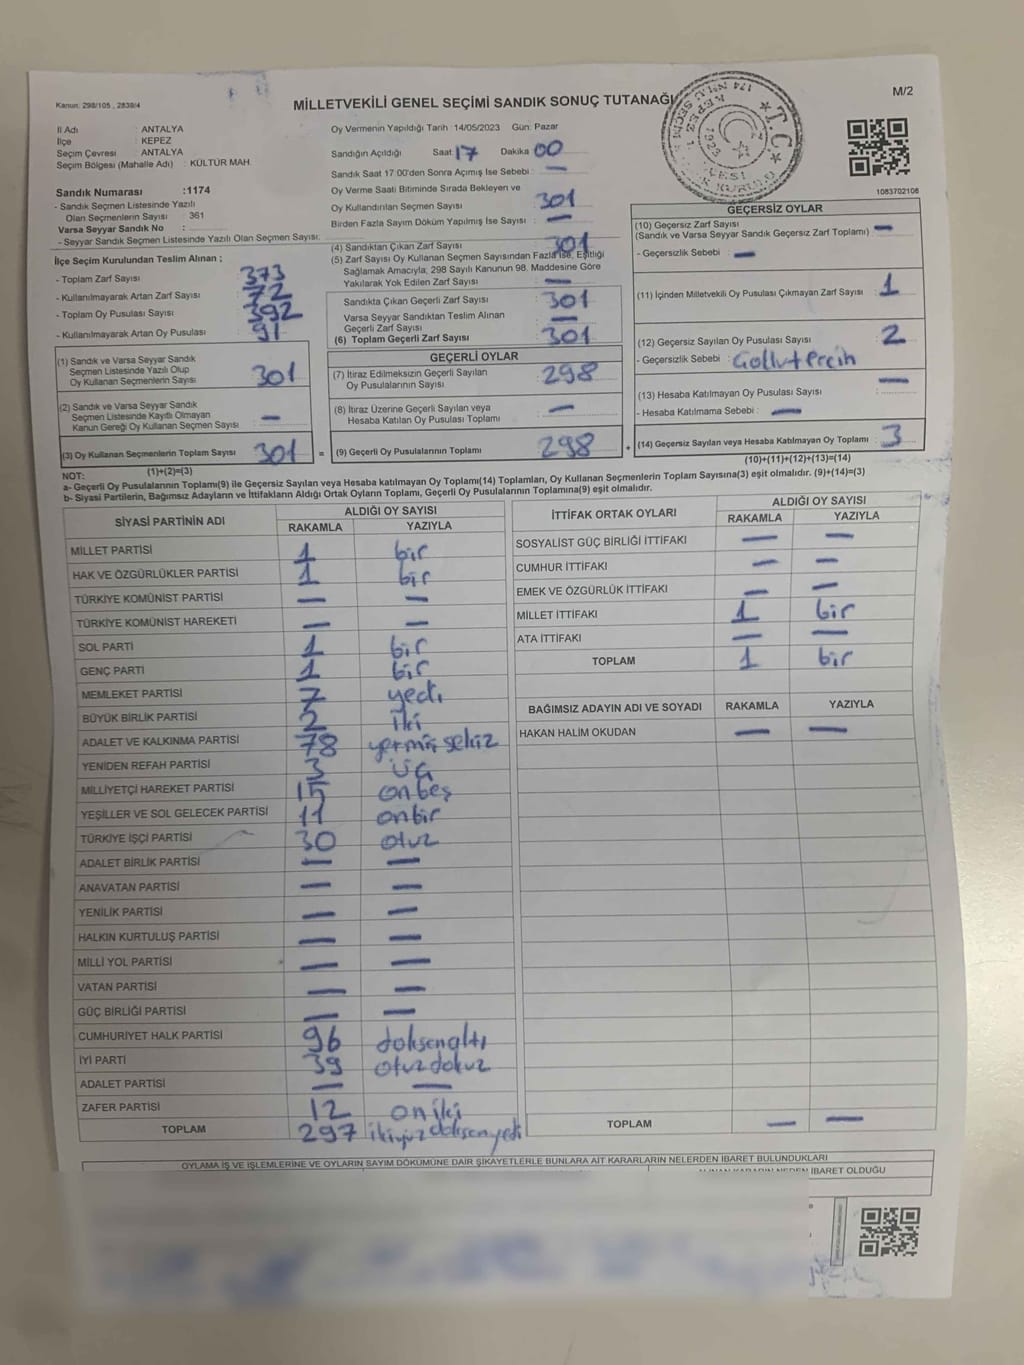 Kanun: 298/105 , 2839/4
MİLLETVEKİLİ GENEL SEÇİMİ SANDIK SONUÇ TUTANAĞI
M/2
İl Adı : ANTALYA
İlçe : KEPEZ
Seçim Çevresi : ANTALYA
Seçim Bölgesi (Mahalle Adı) : KÜLTÜR MAH.
Sandık Numarası :1174
- Sandık Seçmen Listesinde Yazılı
Olan Seçmenlerin Sayısı : 361
Varsa Seyyar Sandık No :
- Seyyar Sandık Seçmen Listesinde Yazılı Olan Seçmen Sayısı:
İlçe Seçim Kurulundan Teslim Alınan ;
- Toplam Zarf Sayısı : 373
- Kullanılmayarak Artan Zarf Sayısı : 72
- Toplam Oy Pusulası Sayısı : 392
- Kullanılmayarak Artan Oy Pusulası : 91
(1) Sandık ve Varsa Seyyar Sandık
Seçmen Listesinde Yazılı Olup
Oy Kullanan Seçmenlerin Sayısı : 301
(2) Sandık ve Varsa Seyyar Sandık
Seçmen Listesinde Kayıtlı Olmayan
Kanun Gereği Oy Kullanan Seçmen Sayısı : —
(3) Oy Kullanan Seçmenlerin Toplam Sayısı : 301
(1)+(2)=(3)
Oy Vermenin Yapıldığı Tarih :14/05/2023 Gün: Pazar
Sandığın Açıldığı Saat 17 Dakika 00
Sandık Saat 17:00'den Sonra Açımış İse Sebebi : —
Oy Verme Saati Bitiminde Sırada Bekleyen ve
Oy Kullandırılan Seçmen Sayısı : 301
Birden Fazla Sayım Döküm Yapılmış İse Sayısı : —
(4) Sandıktan Çıkan Zarf Sayısı : 301
(5) Zarf Sayısı Oy Kullanan Seçmen Sayısından Fazla İse, Eşitliği
Sağlamak Amacıyla, 298 Sayılı Kanunun 98. Maddesine Göre
Yakılarak Yok Edilen Zarf Sayısı : —
Sandıkta Çıkan Geçerli Zarf Sayısı : 301
Varsa Seyyar Sandıktan Teslim Alınan
Geçerli Zarf Sayısı : —
(6) Toplam Geçerli Zarf Sayısı : 301
GEÇERLİ OYLAR
(7) İtiraz Edilmeksizin Geçerli Sayılan
Oy Pusulalarının Sayısı : 298
(8) İtiraz Üzerine Geçerli Sayılan veya
Hesaba Katılan Oy Pusulası Toplamı : —
= (9) Geçerli Oy Pusulalarının Toplamı : 298 +
1083702106
GEÇERSİZ OYLAR
(10) Geçersiz Zarf Sayısı : —
(Sandık ve Varsa Seyyar Sandık Geçersiz Zarf Toplamı)
- Geçersizlik Sebebi : —
(11) İçinden Milletvekili Oy Pusulası Çıkmayan Zarf Sayısı : 1
(12) Geçersiz Sayılan Oy Pusulası Sayısı : 2
- Geçersizlik Sebebi :
(13) Hesaba Katılmayan Oy Pusulası Sayısı : —
- Hesaba Katılmama Sebebi : —
(14) Geçersiz Sayılan veya Hesaba Katılmayan Oy Toplamı : 3
(10)+(11)+(12)+(13)=(14)
NOT:
a- Geçerli Oy Pusulalarının Toplamı(9) ile Geçersiz Sayılan veya Hesaba katılmayan Oy Toplamı(14) Toplamları, Oy Kullanan Seçmenlerin Toplam Sayısına(3) eşit olmalıdır. (9)+(14)=(3)
b- Siyasi Partilerin, Bağımsız Adayların ve İttifakların Aldığı Ortak Oyların Toplamı, Geçerli Oy Pusulalarının Toplamına(9) eşit olmalıdır.
SİYASİ PARTİNİN ADI
ALDIĞI OY SAYISI
RAKAMLA YAZIYLA
MİLLET PARTİSİ 1 bir
HAK VE ÖZGÜRLÜKLER PARTİSİ 1 bir
TÜRKİYE KOMÜNİST PARTİSİ — —
TÜRKİYE KOMÜNİST HAREKETİ — —
SOL PARTİ 1 bir
GENÇ PARTİ 1 bir
MEMLEKET PARTİSİ 7 yedi
BÜYÜK BİRLİK PARTİSİ 2 iki
ADALET VE KALKINMA PARTİSİ 78 yetmiş sekiz
YENİDEN REFAH PARTİSİ 3 üç
MİLLİYETÇİ HAREKET PARTİSİ 15 onbeş
YEŞİLLER VE SOL GELECEK PARTİSİ 11 onbir
TÜRKİYE İŞÇİ PARTİSİ 30 otuz
ADALET BİRLİK PARTİSİ — —
ANAVATAN PARTİSİ — —
YENİLİK PARTİSİ — —
HALKIN KURTULUŞ PARTİSİ — —
MİLLİ YOL PARTİSİ — —
VATAN PARTİSİ — —
GÜÇ BİRLİĞİ PARTİSİ — —
CUMHURİYET HALK PARTİSİ 96 doksanaltı
İYİ PARTİ 39 otuzdokuz
ADALET PARTİSİ — —
ZAFER PARTİSİ 12 oniki
TOPLAM 297 ikiyüzdoksanyedi
İTTİFAK ORTAK OYLARI
ALDIĞI OY SAYISI
RAKAMLA YAZIYLA
SOSYALİST GÜÇ BİRLİĞİ İTTİFAKI — —
CUMHUR İTTİFAKI — —
EMEK VE ÖZGÜRLÜK İTTİFAKI — —
MİLLET İTTİFAKI 1 bir
ATA İTTİFAKI — —
TOPLAM 1 bir
BAĞIMSIZ ADAYIN ADI VE SOYADI RAKAMLA YAZIYLA
HAKAN HALİM OKUDAN — —
TOPLAM — —
OYLAMA İŞ VE İŞLEMLERİNE VE OYLARIN SAYIM DÖKÜMÜNE DAİR ŞİKAYETLERLE BUNLARA AİT KARARLARIN NELERDEN İBARET BULUNDUKLARI
İBARET OLDUĞU